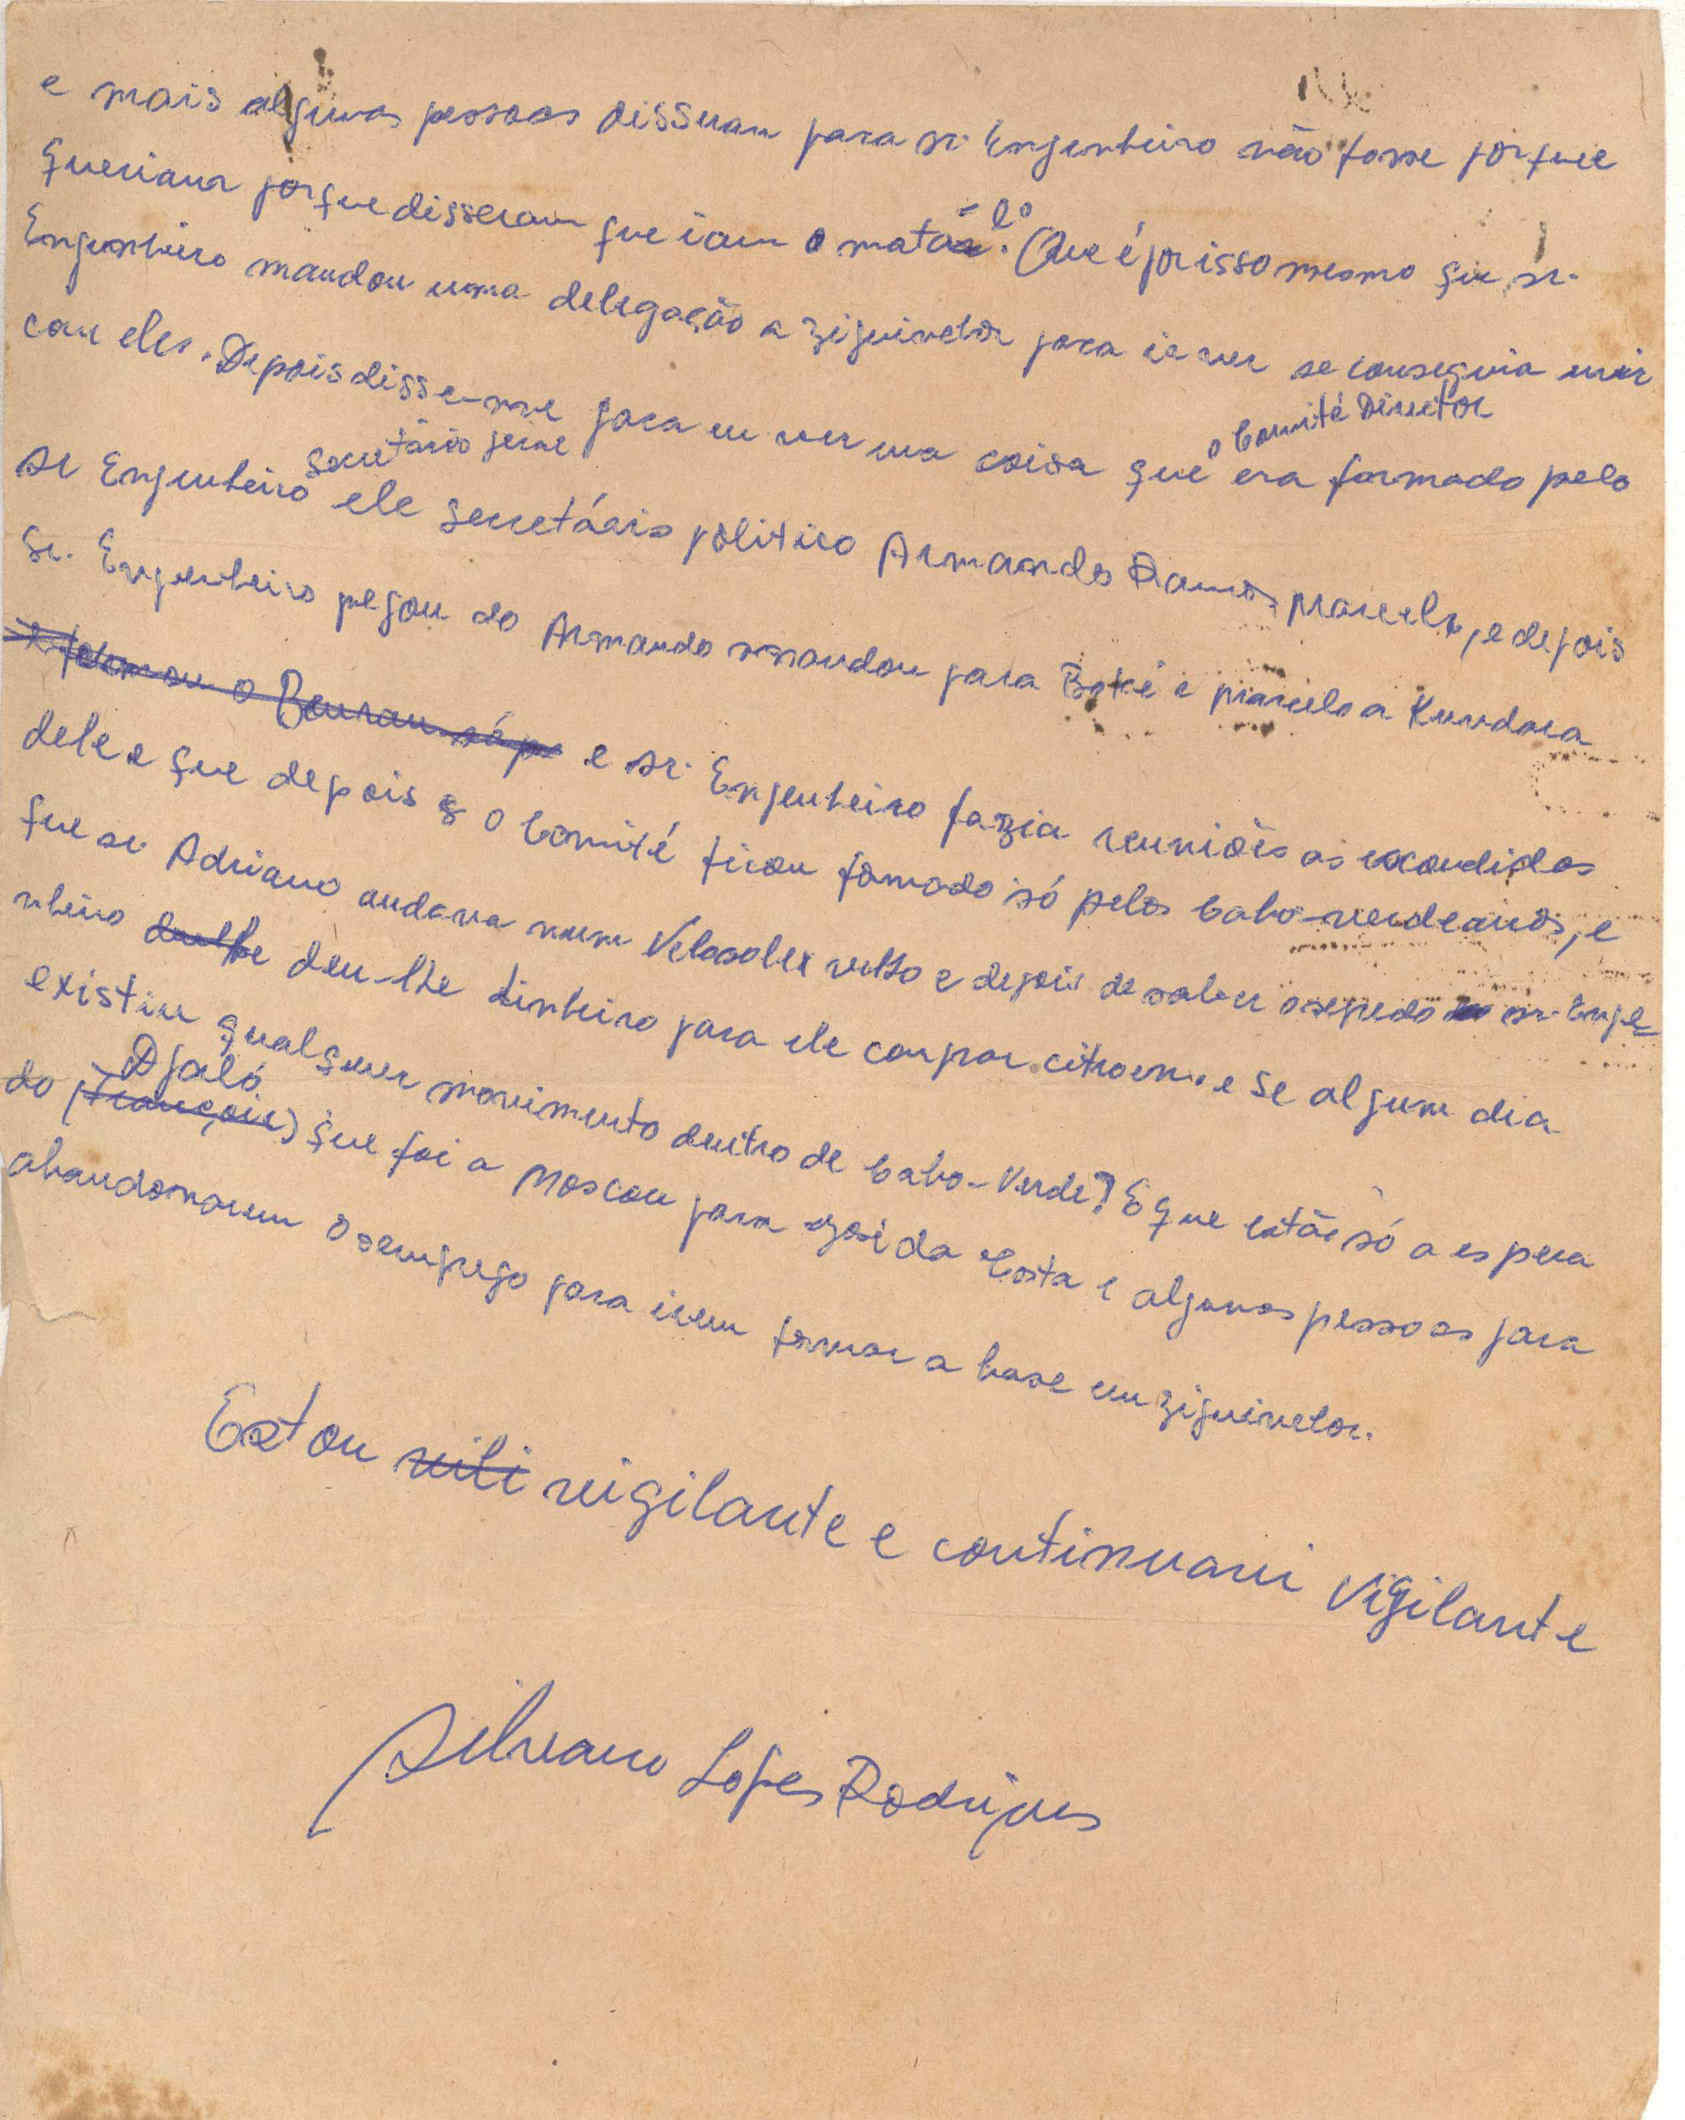 e mais algumas pessoas disseram para sr. Engenheiro não fosse porque
queriam porque disseram que iam o matá-lo. (Que é por isso mesmo que, sr.
Engenheiro mandou uma delegação a ziguinchor para ir ver se conseguia unir
com eles. Depois disse-me para eu ver uma coisa que o Comité Director era formado pelo
sr Engenheiro secretário geral ele secretário politico Armando Ramos, Marcelo, e depois
Sr. Engenheiro pegou do Armando mandou para Boké e Marcelo a Kundara
e formou o Bureau só po e sr. Engenheiro fazia reuniões as escondidas
dele e que depois o Comité ficou fomado só pelos Cabo-verdeanos, e
que sr. Adriano andava num Velosolex velho e depois de saber o segredo sr. Enge
nheiro deu-lhe deu-lhe dinheiro para ele compar citroen. e se algum dia
existiu qualquer movimento dentro de Cabo-Verde? E que estão só a espera
do (François) Djaló que foi a Moscou para zaida Costa e algumas pessoas para
abandonarem o semprego para irem formar a base em ziguinchor.
Estou vili vigilante e continuarei vigilante
Silvano Lopes Rodrigues